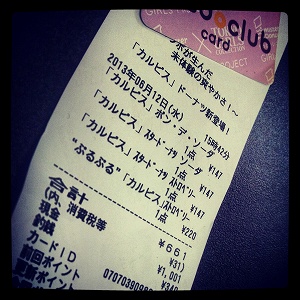 club
card
ボが生んだ
未体験の爽やかさ!～
「カルピス」ドーナツ新登場!
2013年06月12日(水) 15時42分
「カルピス」ポン・デ・ソーダ
1点 ¥147
「カルピス」スタードーナツ ソーダ
1点 ¥147
「カルピス」スタードーナツ ストロベリー
1点 ¥147
"ぷるぷる"「カルピス」ストロベリー
1点 ¥220
合計 ¥661
(内、消費税等 ¥31)
現金 ¥1,001
釣銭 ¥340
カードID
前回ポイント